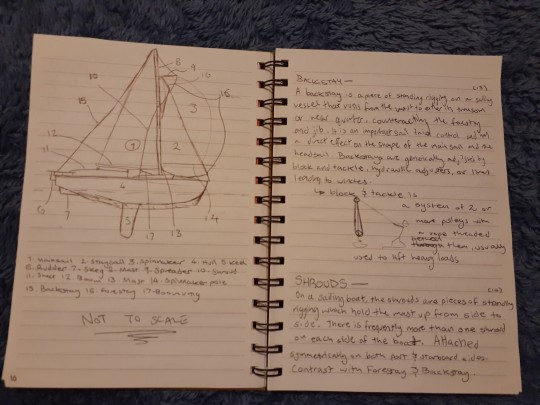 8
9
10
16
10
3
15
1
2
12
11
4
6
7
5
17
13
14
1. mainsail 2. staysail 3. Spinnaker 4. Hull 5. keel
6. Rudder 7. Skeg 8. Mast 9. Spreader 10. Shroud
11. Sheet 12. Boom 13. Mast 14. Spinnaker Pole
15. Backstay 16. Forestay 17. Boom vang
NOT TO SCALE
BACKSTAY —
A backstay is a piece of standing rigging on a sailing
vessel that runs from the mast to either its transom
or rear quarter, counteracting the forestay
and jib. It is an important sail trim control and has
a direct effect on the shape of the mainsail and the
headsail. Backstays are generally adjusted by
block and tackle, hydraulic adjusters, or lines
leading to winches.
↳ block & tackle is
a system of 2 or
more pulleys with
a rope threaded
between them, usually
used to lift heavy loads
SHROUDS — (10)
On a sailing boat, the shrouds are pieces of standing
rigging which hold the mast up from side to
side. There is frequently more than one shroud
on each side of the boat. Attached
symmetrically on both port & starboard sides.
Contrast with Forestay & Backstay